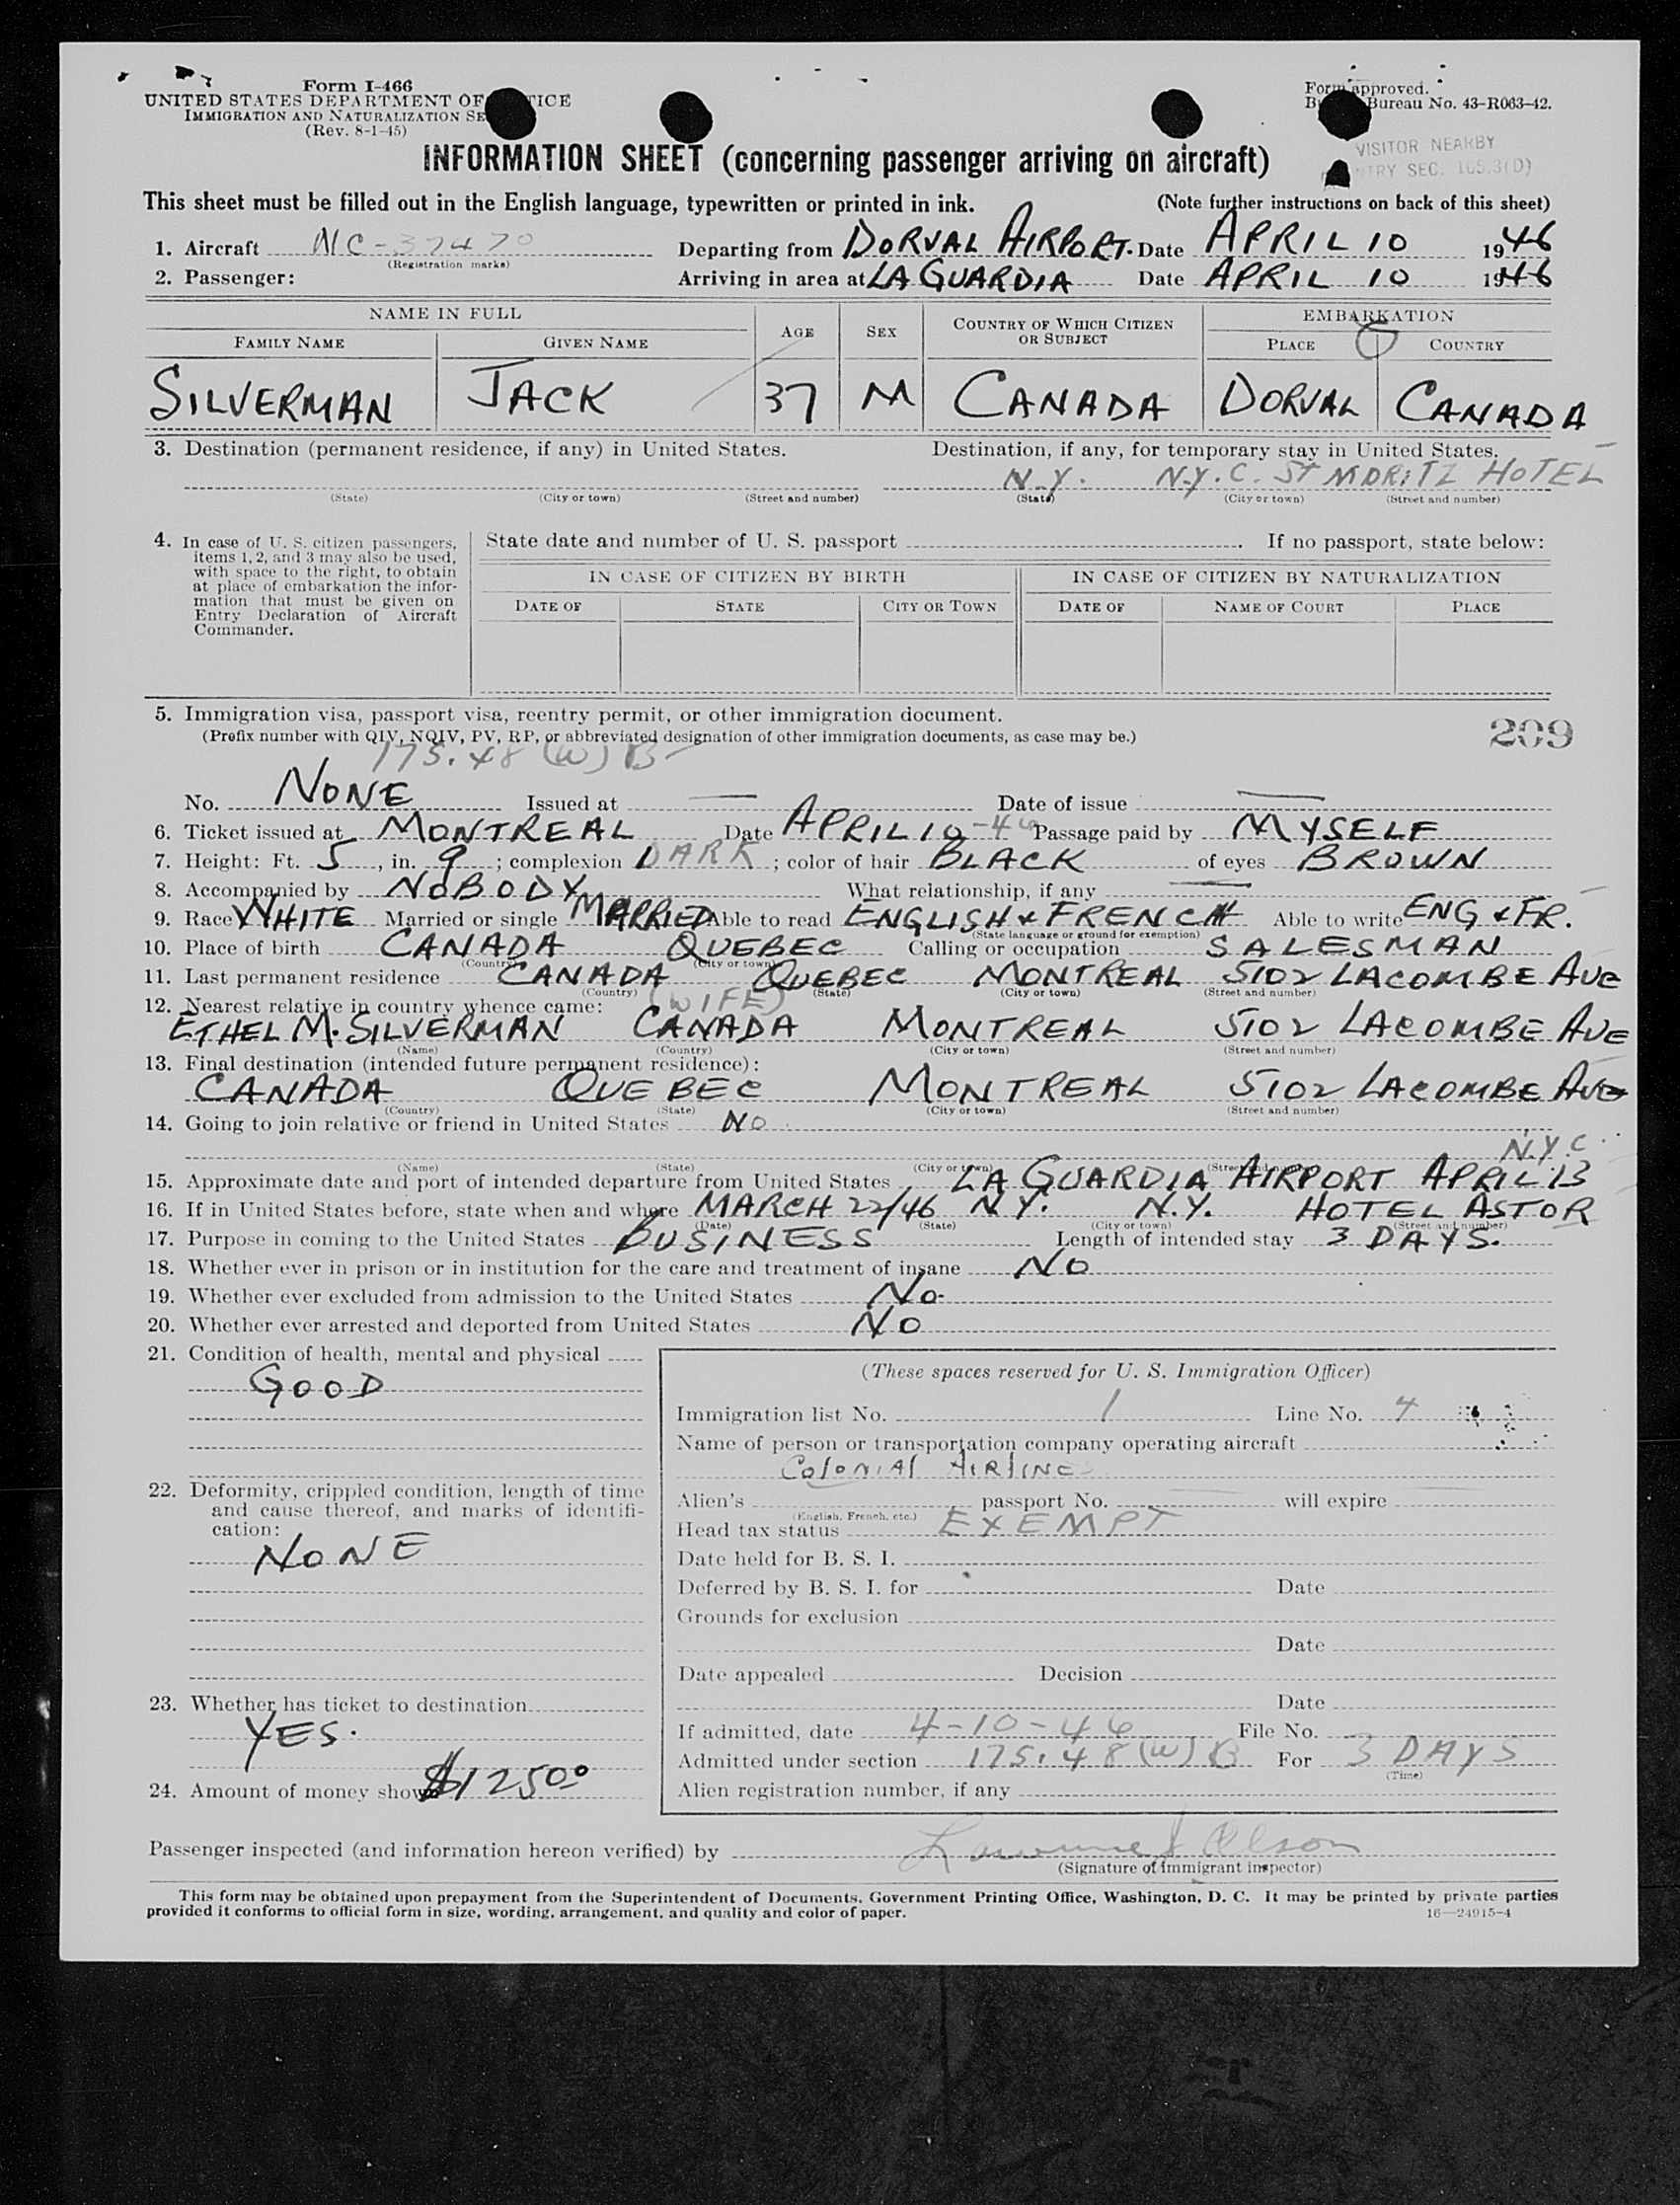 Form I-466
UNITED STATES DEPARTMENT OF TICE
IMMIGRATION AND NATURALIZATION SE
(Rev. 8-1-45)
Form approved.
Bureau No. 43-R063-42.
VISITOR NEARBY
TRY SEC. 165.3(D)
INFORMATION SHEET (concerning passenger arriving on aircraft)
This sheet must be filled out in the English language, typewritten or printed in ink. (Note further instructions on back of this sheet)
1. Aircraft NC-37470 Departing from DORVAL AIRPORT. Date APRIL 10 1946
(Registration marks)
2. Passenger: Arriving in area at LA GUARDIA Date APRIL 10 1946
NAME IN FULL AGE SEX COUNTRY OF WHICH CITIZEN OR SUBJECT EMBARKATION
FAMILY NAME GIVEN NAME PLACE COUNTRY
SILVERMAN JACK 37 M CANADA DORVAL CANADA
3. Destination (permanent residence, if any) in United States. Destination, if any, for temporary stay in United States.
N.Y. N.Y.C. ST MORITZ HOTEL
(State) (City or town) (Street and number) (State) (City or town) (Street and number)
4. In case of U. S. citizen passengers, items 1, 2, and 3 may also be used, with space to the right, to obtain at place of embarkation the information that must be given on Entry Declaration of Aircraft Commander.
State date and number of U. S. passport . If no passport, state below:
IN CASE OF CITIZEN BY BIRTH IN CASE OF CITIZEN BY NATURALIZATION
DATE OF STATE CITY OR TOWN DATE OF NAME OF COURT PLACE
5. Immigration visa, passport visa, reentry permit, or other immigration document.
(Prefix number with QIV, NQIV, PV, RP, or abbreviated designation of other immigration documents, as case may be.)
209
175.48 (W) B
No. NONE Issued at — Date of issue —
6. Ticket issued at MONTREAL Date APRIL 10-46 Passage paid by MYSELF
7. Height: Ft. 5, in. 9; complexion DARK; color of hair BLACK of eyes BROWN
8. Accompanied by NOBODY What relationship, if any —
9. Race WHITE Married or single MARRIED Able to read ENGLISH & FRENCH Able to write ENG & FR.
(State language or ground for exemption)
10. Place of birth CANADA QUEBEC Calling or occupation SALESMAN
(Country) (City or town)
11. Last permanent residence CANADA QUEBEC MONTREAL 5102 LACOMBE AVE
(Country) (State) (City or town) (Street and number)
12. Nearest relative in country whence came: (WIFE)
ETHEL M. SILVERMAN CANADA MONTREAL 5102 LACOMBE AVE
(Name) (Country) (City or town) (Street and number)
13. Final destination (intended future permanent residence):
CANADA QUEBEC MONTREAL 5102 LACOMBE AVE
(Country) (State) (City or town) (Street and number)
14. Going to join relative or friend in United States NO
N.Y.C.
(Name) (State) (City or town) (Street and number)
15. Approximate date and port of intended departure from United States LA GUARDIA AIRPORT APRIL 13
16. If in United States before, state when and where MARCH 22/46 N.Y. N.Y. HOTEL ASTOR
(Date) (State) (City or town) (Street and number)
17. Purpose in coming to the United States BUSINESS Length of intended stay 3 DAYS.
18. Whether ever in prison or in institution for the care and treatment of insane NO
19. Whether ever excluded from admission to the United States No.
20. Whether ever arrested and deported from United States NO
21. Condition of health, mental and physical
GOOD
22. Deformity, crippled condition, length of time and cause thereof, and marks of identification:
NONE
23. Whether has ticket to destination
YES.
24. Amount of money shown $125.00
(These spaces reserved for U. S. Immigration Officer)
Immigration list No. 1 Line No. 4
Name of person or transportation company operating aircraft
Colonial AIRLINES
Alien's passport No. will expire
(English, French, etc.)
Head tax status EXEMPT
Date held for B. S. I.
Deferred by B. S. I. for Date
Grounds for exclusion
Date
Date appealed Decision
Date
If admitted, date 4-10-46 File No.
Admitted under section 175.48(W)B For 3 DAYS
(Time)
Alien registration number, if any
Passenger inspected (and information hereon verified) by Olson
(Signature of immigrant inspector)
This form may be obtained upon prepayment from the Superintendent of Documents, Government Printing Office, Washington, D. C. It may be printed by private parties
provided it conforms to official form in size, wording, arrangement, and quality and color of paper.
16—24915-4